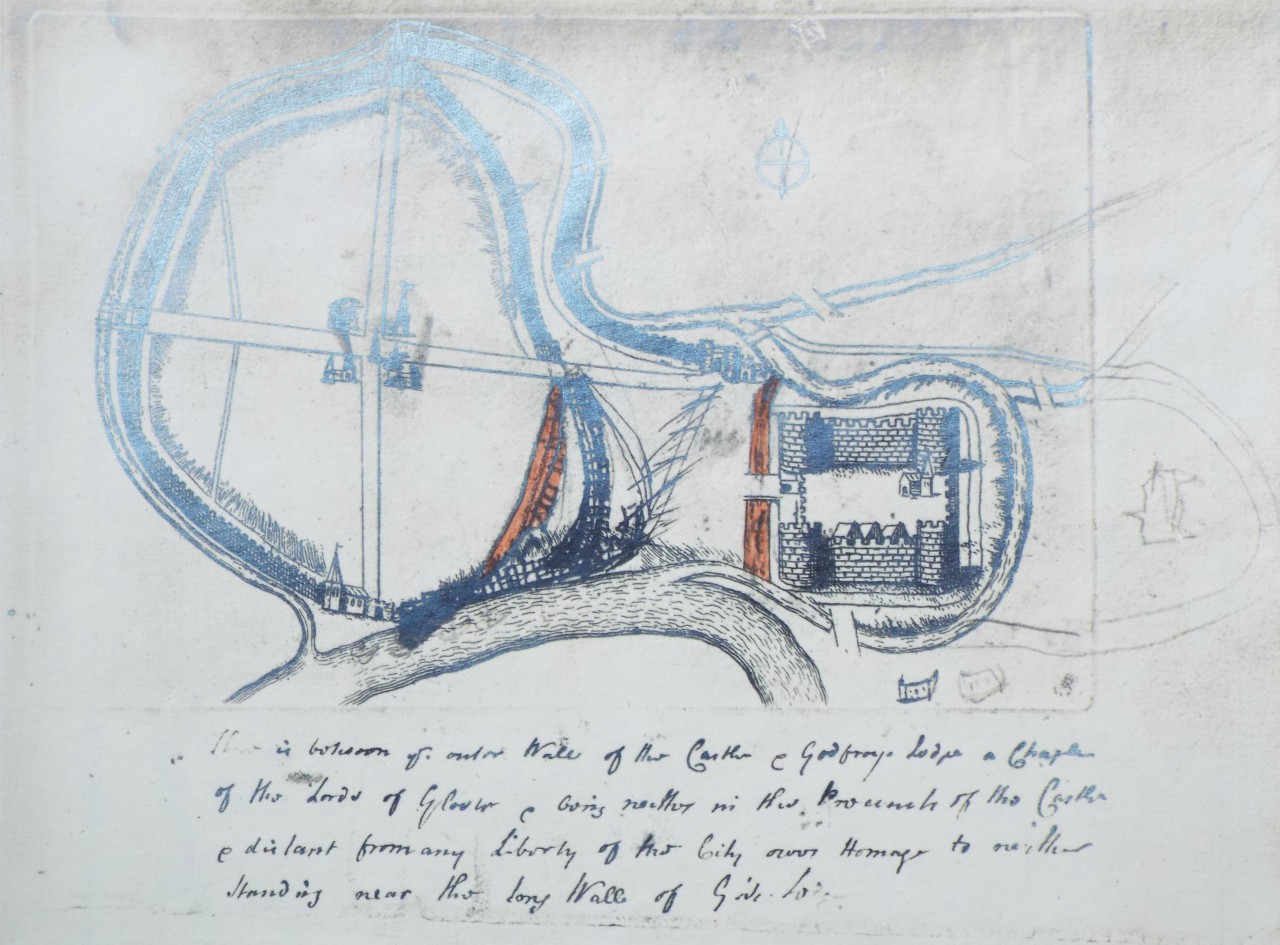 is between ye. outer Wall of the Castle & Godfroys Lodge a Chaple
of the Lords of Glostr & being neither in the Precincts of the Castle
& distant from any Liberty of the City owes Homage to neither
standing near the long Walle of